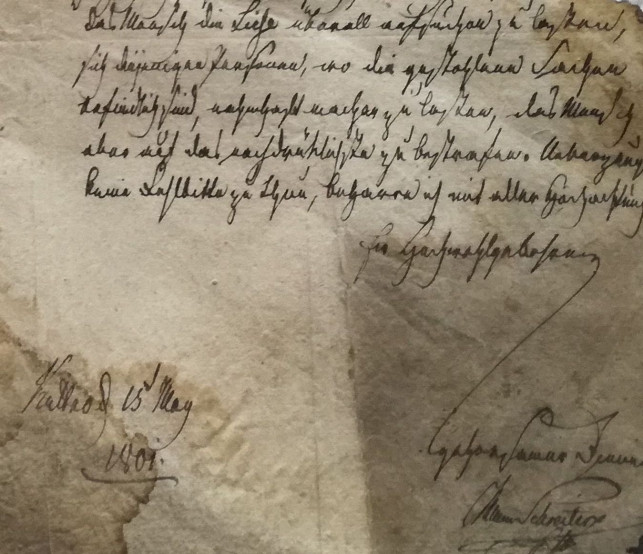 das Mensch die Liese überall aufsuchen zu lassen,
sich diejenigen Personen, wo die gestohlene Sachen
befindlich sind, nahmhaft machen zu lassen, das Mensch
aber auf das nachdrücklichste zu bestrafen.
keine Fehlbitte zu thun, beharre ich mit aller Hochachtung
Ew Hochwohlgebohren
15t May
1801.
gehorsamer Diener